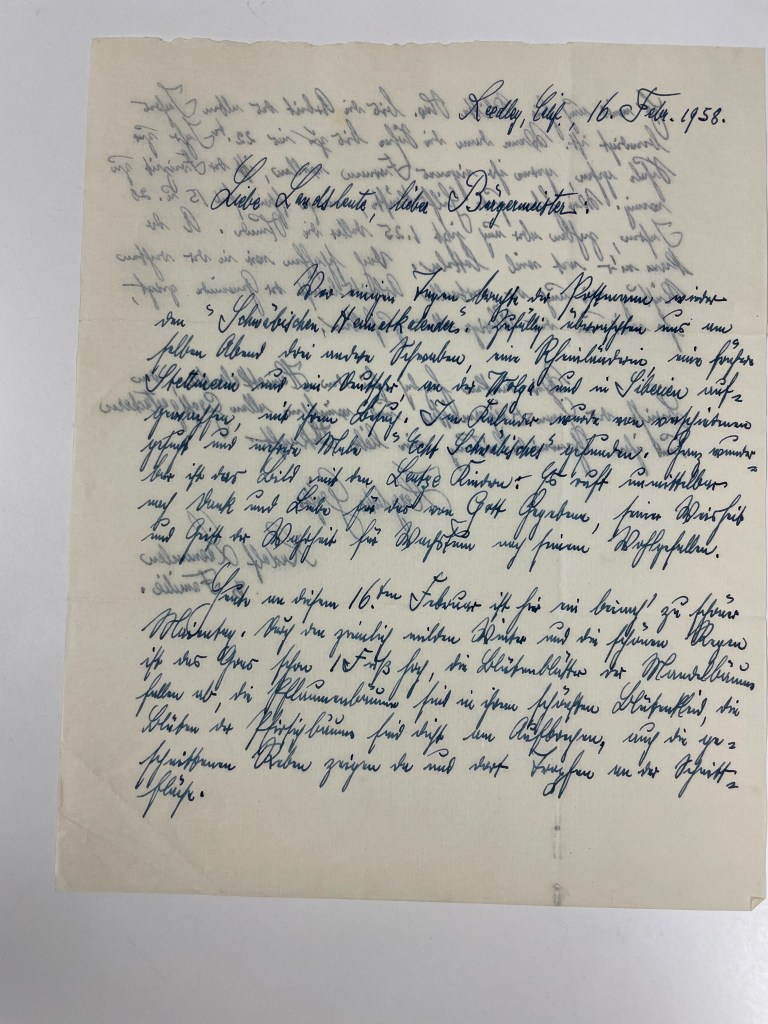 Reedley, Calif., 16. Febr. 1958.
Liebe Landsleute, lieber Bürgermeister!
Vor einigen Tagen brachte der Postmann wieder
den "Schwäbischen Heimatkalender". Zufällig überraschten uns am
selben Abend drei andere Schwaben, eine Rheinländerin eine frühere
Stettinerin und ein Deutscher an der Wolga und in Siberien auf=
gewachsen, mit ihrem Besuch. Im Kalender wurde von verschiedenen
gesucht und mehrere Male "Echt Schwäbisches" gefunden. Ganz wunder=
bar ist das Bild mit den Kindern. Es ruft unmittelbar
nach Dank und Liebe für das von Gott Gegebene, seiner Weisheit
und Geist der Wahrheit für Wachstum nach seinem Wohlgefallen.
Heute an diesem 16.ten Februar ist hier ein beinah' zu schöner
Maientag. Durch den ziemlich milden Winter und die schönen Regen
ist das Gras schon 1 Fuß hoch, die Blütenblätter der Mandelbäume
fallen ab, die Pflaumenbäume sind in ihrem schönsten Blütenkleid, die
Blüten der Pfirsichbäume sind dicht am Aufbrechen, auch die ge=
schnittenen Reben zeigen da und dort Tropfen an der Schnitt=
fläche.